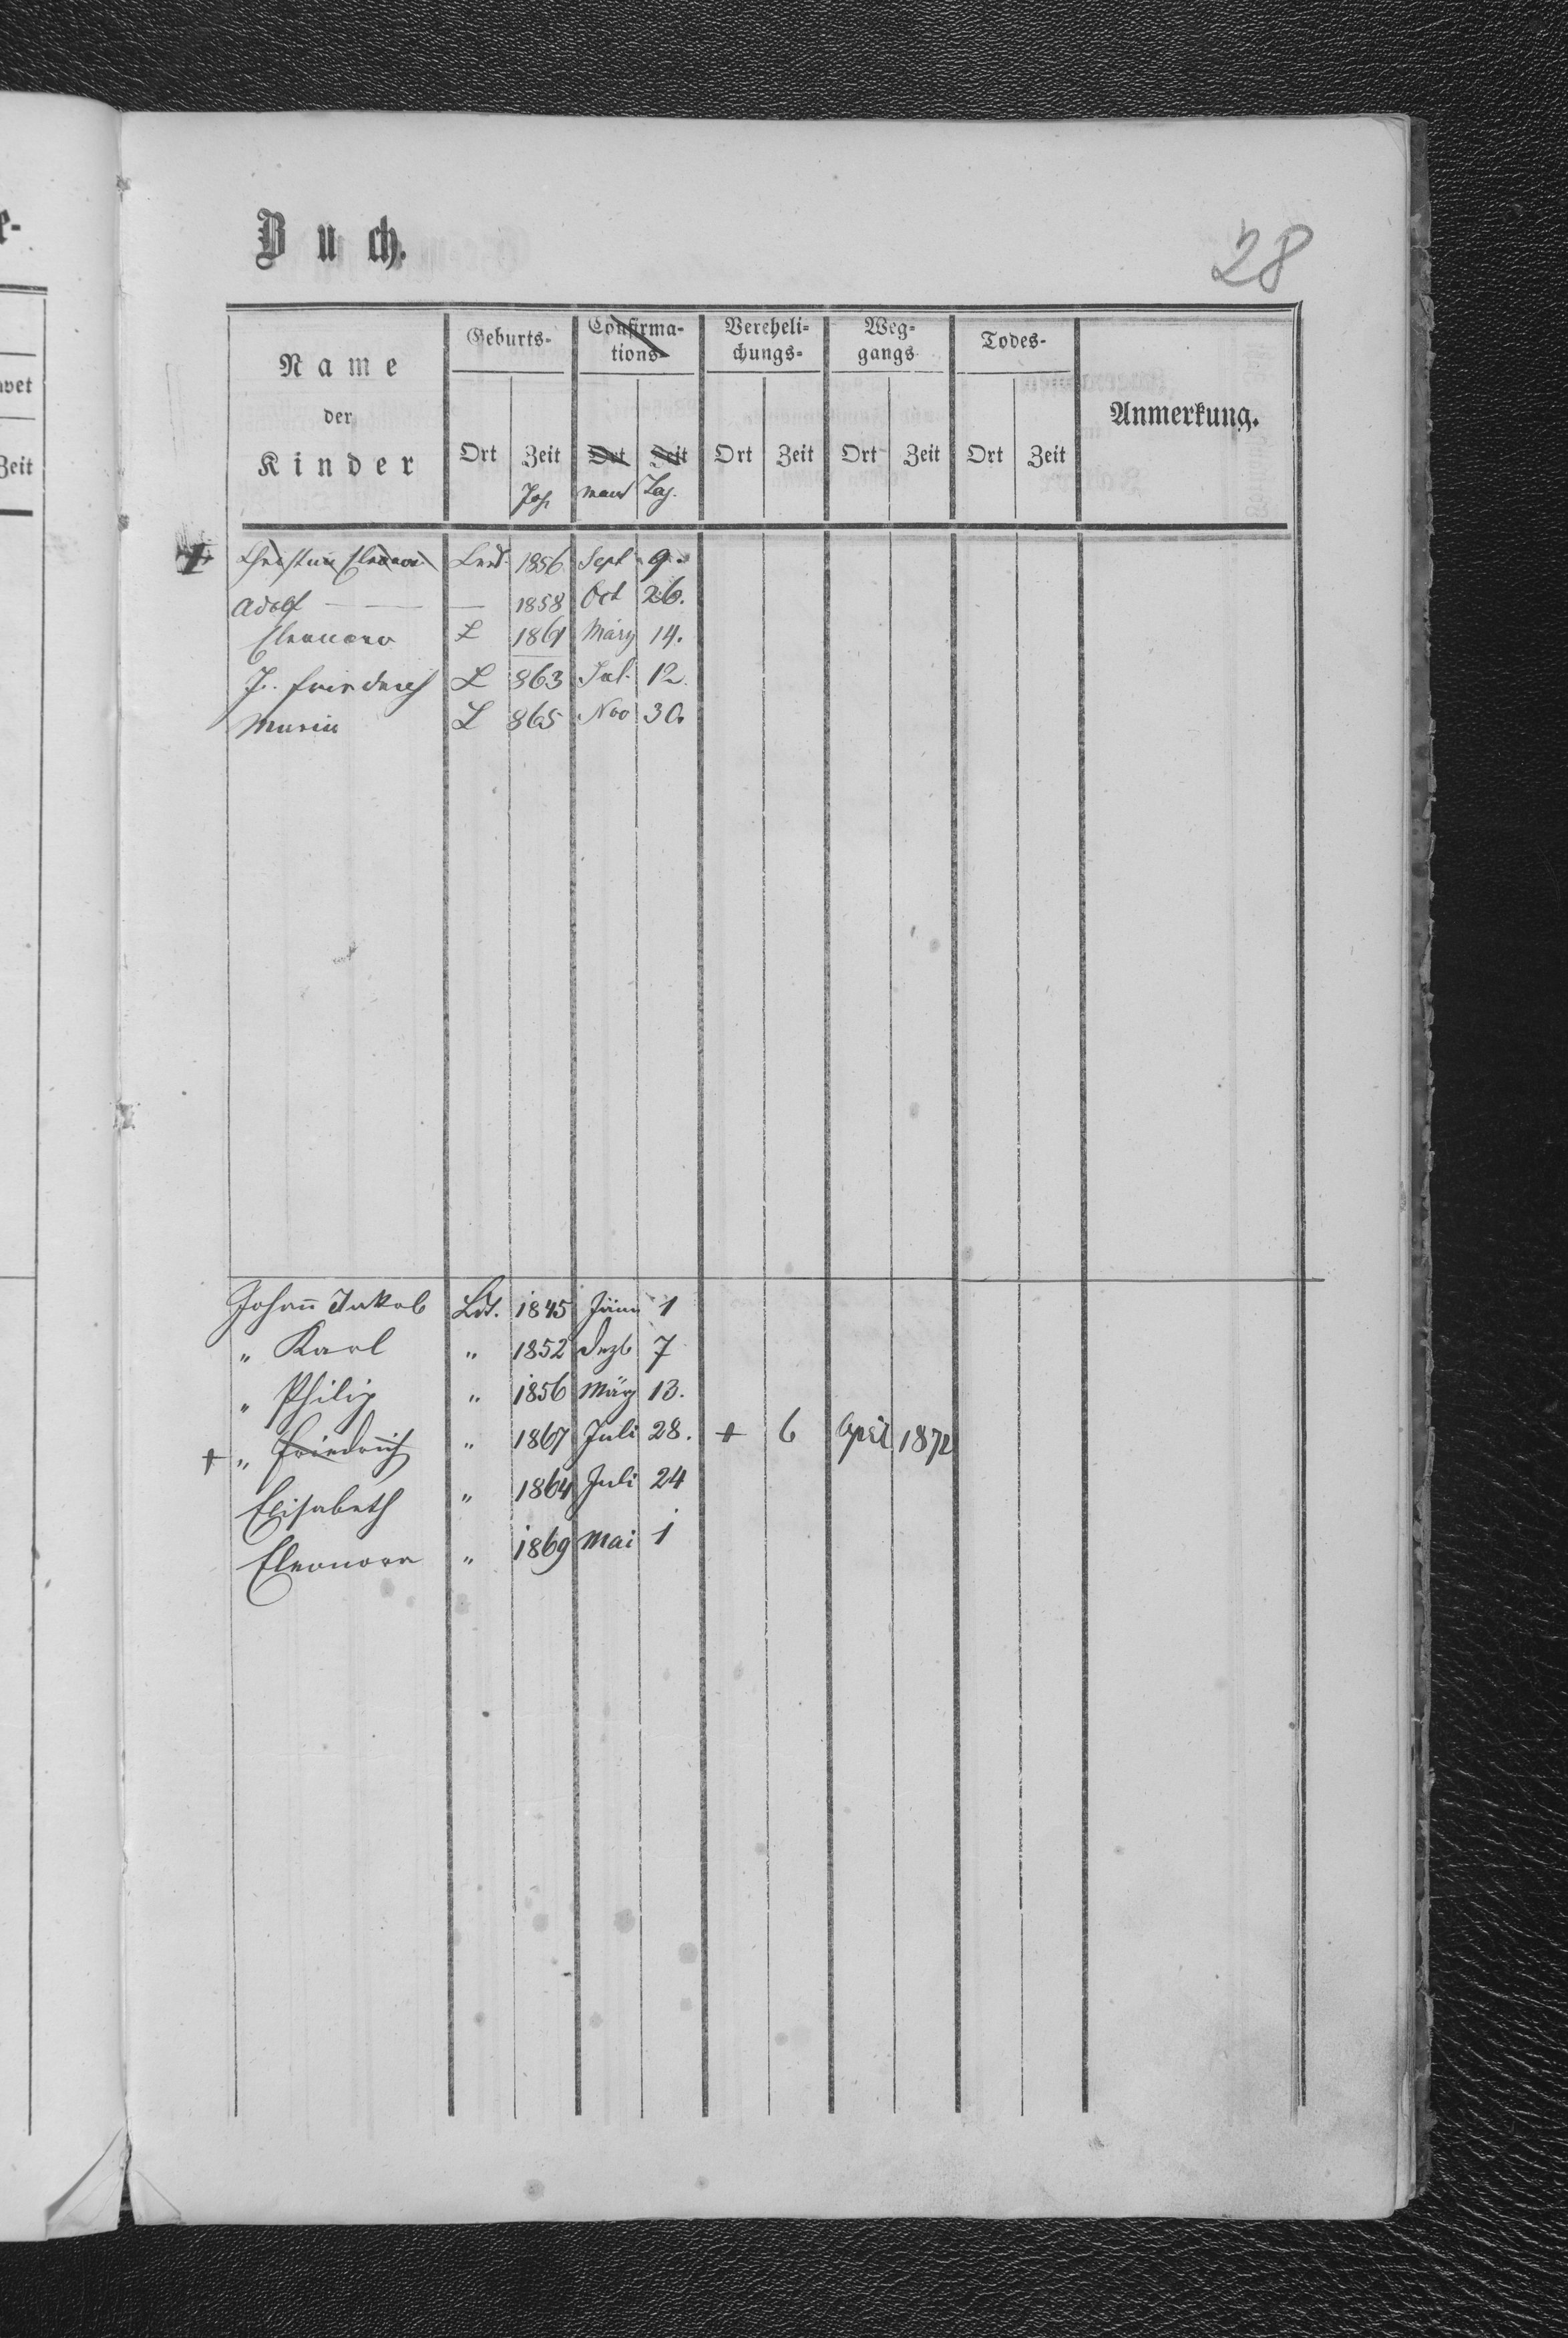 e-
Buch.
28
wet
Zeit
Name
der
Kinder
Geburts-
Confirma-
tions-
Vereheli-
chungs-
Weg-
gangs
Todes-
Anmerkung.
Ort Zeit Ort Zeit Ort Zeit Ort Zeit Ort Zeit
Tag.
+ Christine Eleonor 1856 Sept 9.
Adolf — — — 1858 Oct 26.
Eleonora L 1861 März 14.
J. Friedrich L 863 Jul. 12.
Maria L 865 Nov 30.
Johann Jakob Ldt. 1845 Jänn 1
" Karl " 1852 Dezb 7
" Philip " 1856 März 13.
+ " Friedrich " 1867 Juli 28. + 6 April 1872
Elisabeth " 1864 Juli 24
Eleonora " 1869 Mai 1